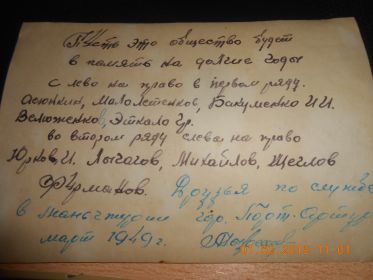 Пусть это общество будет
в память на долгие годы
с лево на право в первом ряду.
Малолетенков, Бакуменко И.И.
Велюженков, Эткало Гр.
во втором ряду слева на право
Юрков И. Лычагов, Михайлов, Щеглов
Фурманов. Друзья по службе
в Маньчжурии гор. Порт. Артур
март 1949 г.
11:01